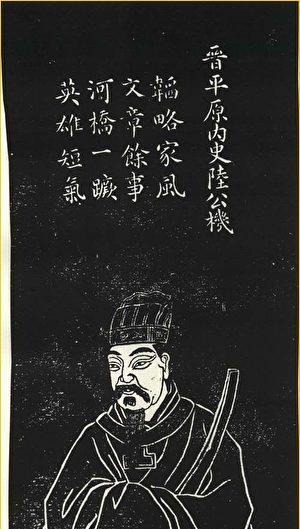 晉平原內史陸公機
韜略家風
文章餘事
河橋一蹶
英雄短氣